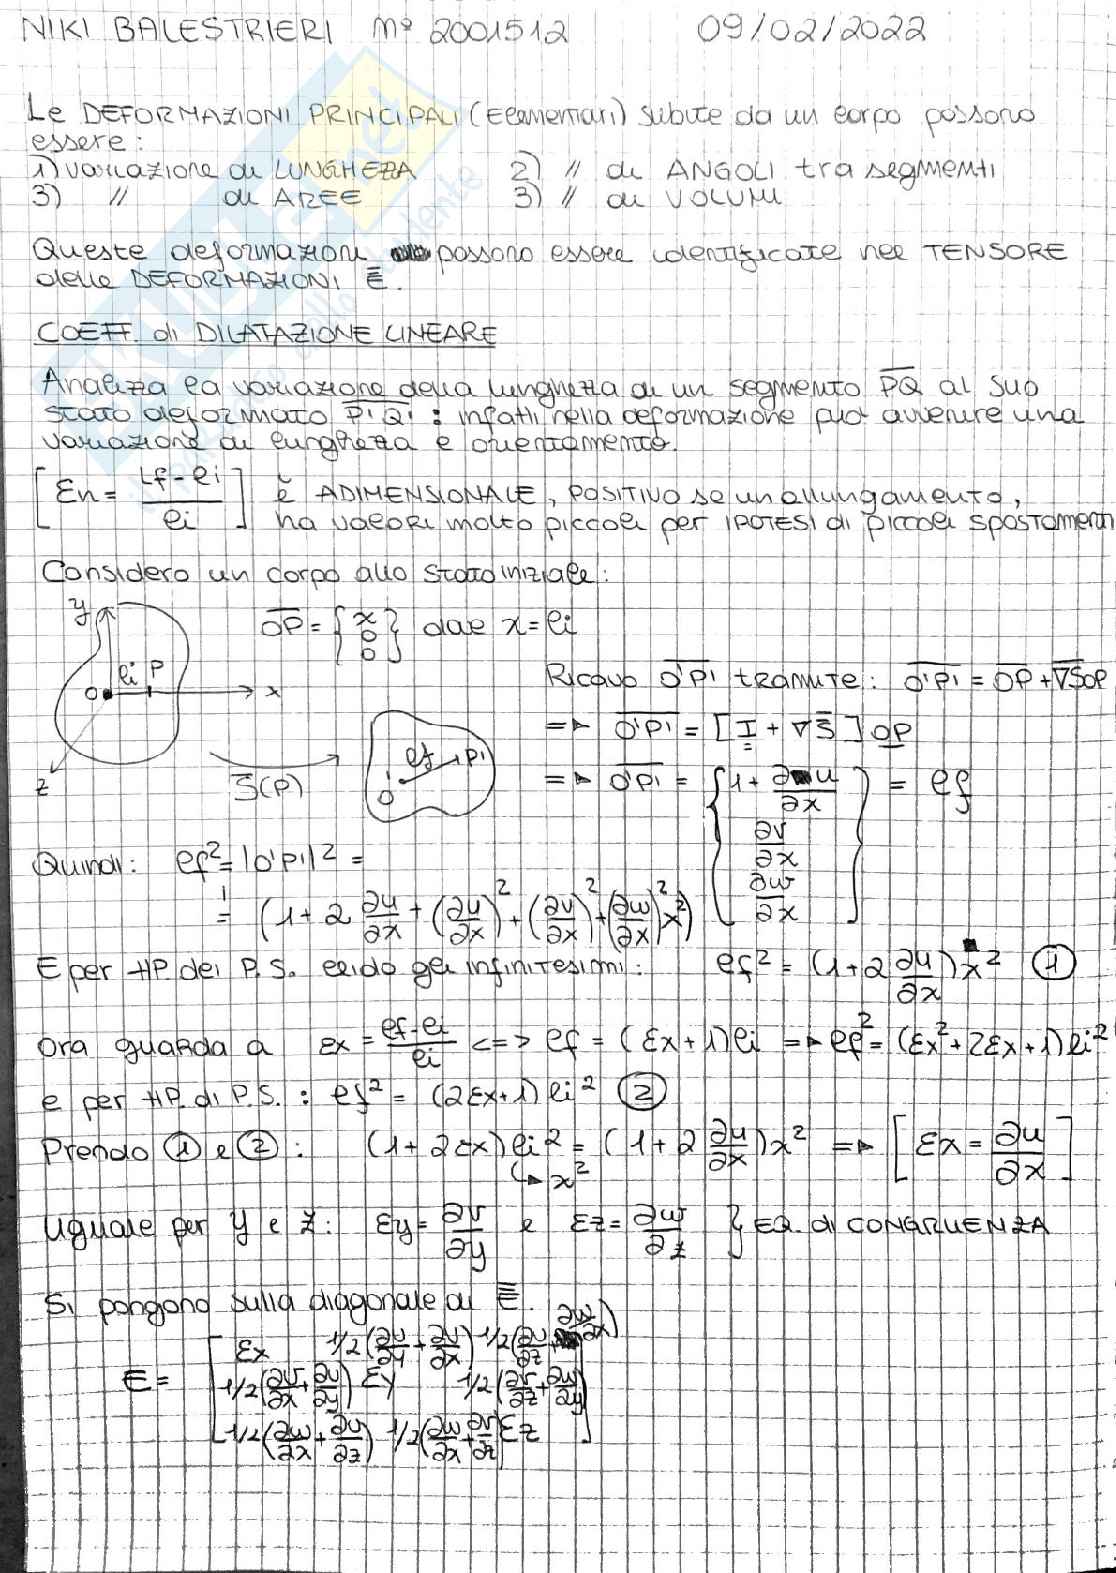 NIKI BALESTRIERI Mª 2001512 09/02/2022
Le DEFORMAZIONI PRINCIPALI (Elementari) subite da un corpo possono
essere:
1) variazione di LUNGHEZZA 2) " di ANGOLI tra segmenti
3) " di AREE 3) " di VOLUMI
Queste deformazioni possono essere identificate nel TENSORE
delle DEFORMAZIONI E.
COEFF. di DILATAZIONE LINEARE
Analizza la variazione della lunghezza di un segmento PQ al suo
stato deformato P'Q': infatti nella deformazione può avvenire una
variazione di lunghezza e orientamento.
[εn = (Lf - li)/li] è ADIMENSIONALE, POSITIVO se un allungamento,
ha valori molto piccoli per IPOTESI di piccoli spostamenti
Considero un corpo allo stato iniziale:
y OP = {x 0 0} dove x = li
O li P x
z
Ricavo O'P' tramite: O'P' = OP + ∇SOP
=> O'P' = [I + ∇S] OP
S(P) O' lf P'
=> O'P' = {1 + ∂u/∂x ∂v/∂x ∂w/∂x} = lf
Quindi: lf² = |O'P'|² =
= (1 + 2 ∂u/∂x + (∂u/∂x)² + (∂v/∂x)² + (∂w/∂x)² x²)
E per HP. dei P.S. elido gli infinitesimi: lf² = (1 + 2 ∂u/∂x) x² ①
Ora guarda a εx = (lf - li)/li <=> lf = (εx + 1) li => lf² = (εx² + 2εx + 1) li²
e per HP. di P.S.: lf² = (2εx + 1) li² ②
Prendo ① e ②: (1 + 2εx) li² = (1 + 2 ∂u/∂x) x² => [εx = ∂u/∂x]
↳ x²
Uguale per y e z: εy = ∂v/∂y e εz = ∂w/∂z } EQ. di CONGRUENZA
Si pongono sulla diagonale di E.
E = [εx 1/2(∂u/∂y + ∂v/∂x) 1/2(∂u/∂z + ∂w/∂x)
1/2(∂v/∂x + ∂u/∂y) εy 1/2(∂v/∂z + ∂w/∂y)
1/2(∂w/∂x + ∂u/∂z) 1/2(∂w/∂x + ∂v/∂z) εz]